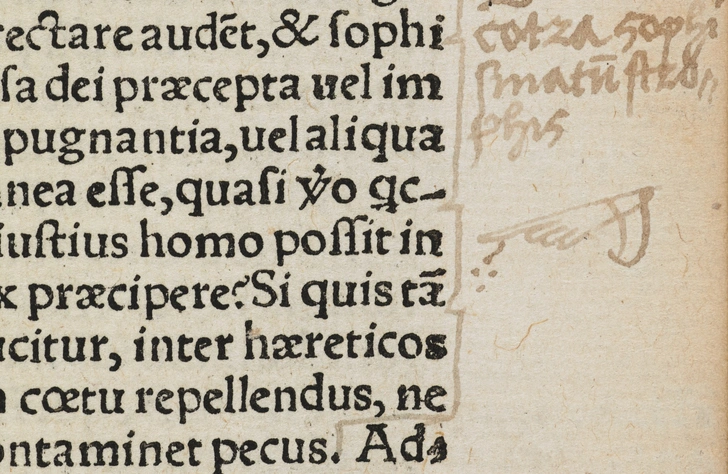 rectare audēt, & ſophi
ſa dei præcepta uel im
pugnantia, uel aliqua
nea eſſe, quaſi
iuſtius homo poſſit in
præcipere? Si quis tā
citur, inter hæreticos
cœtu repellendus, ne
ontaminet pecus. Ad
cotra sophi
smatū stro
phis